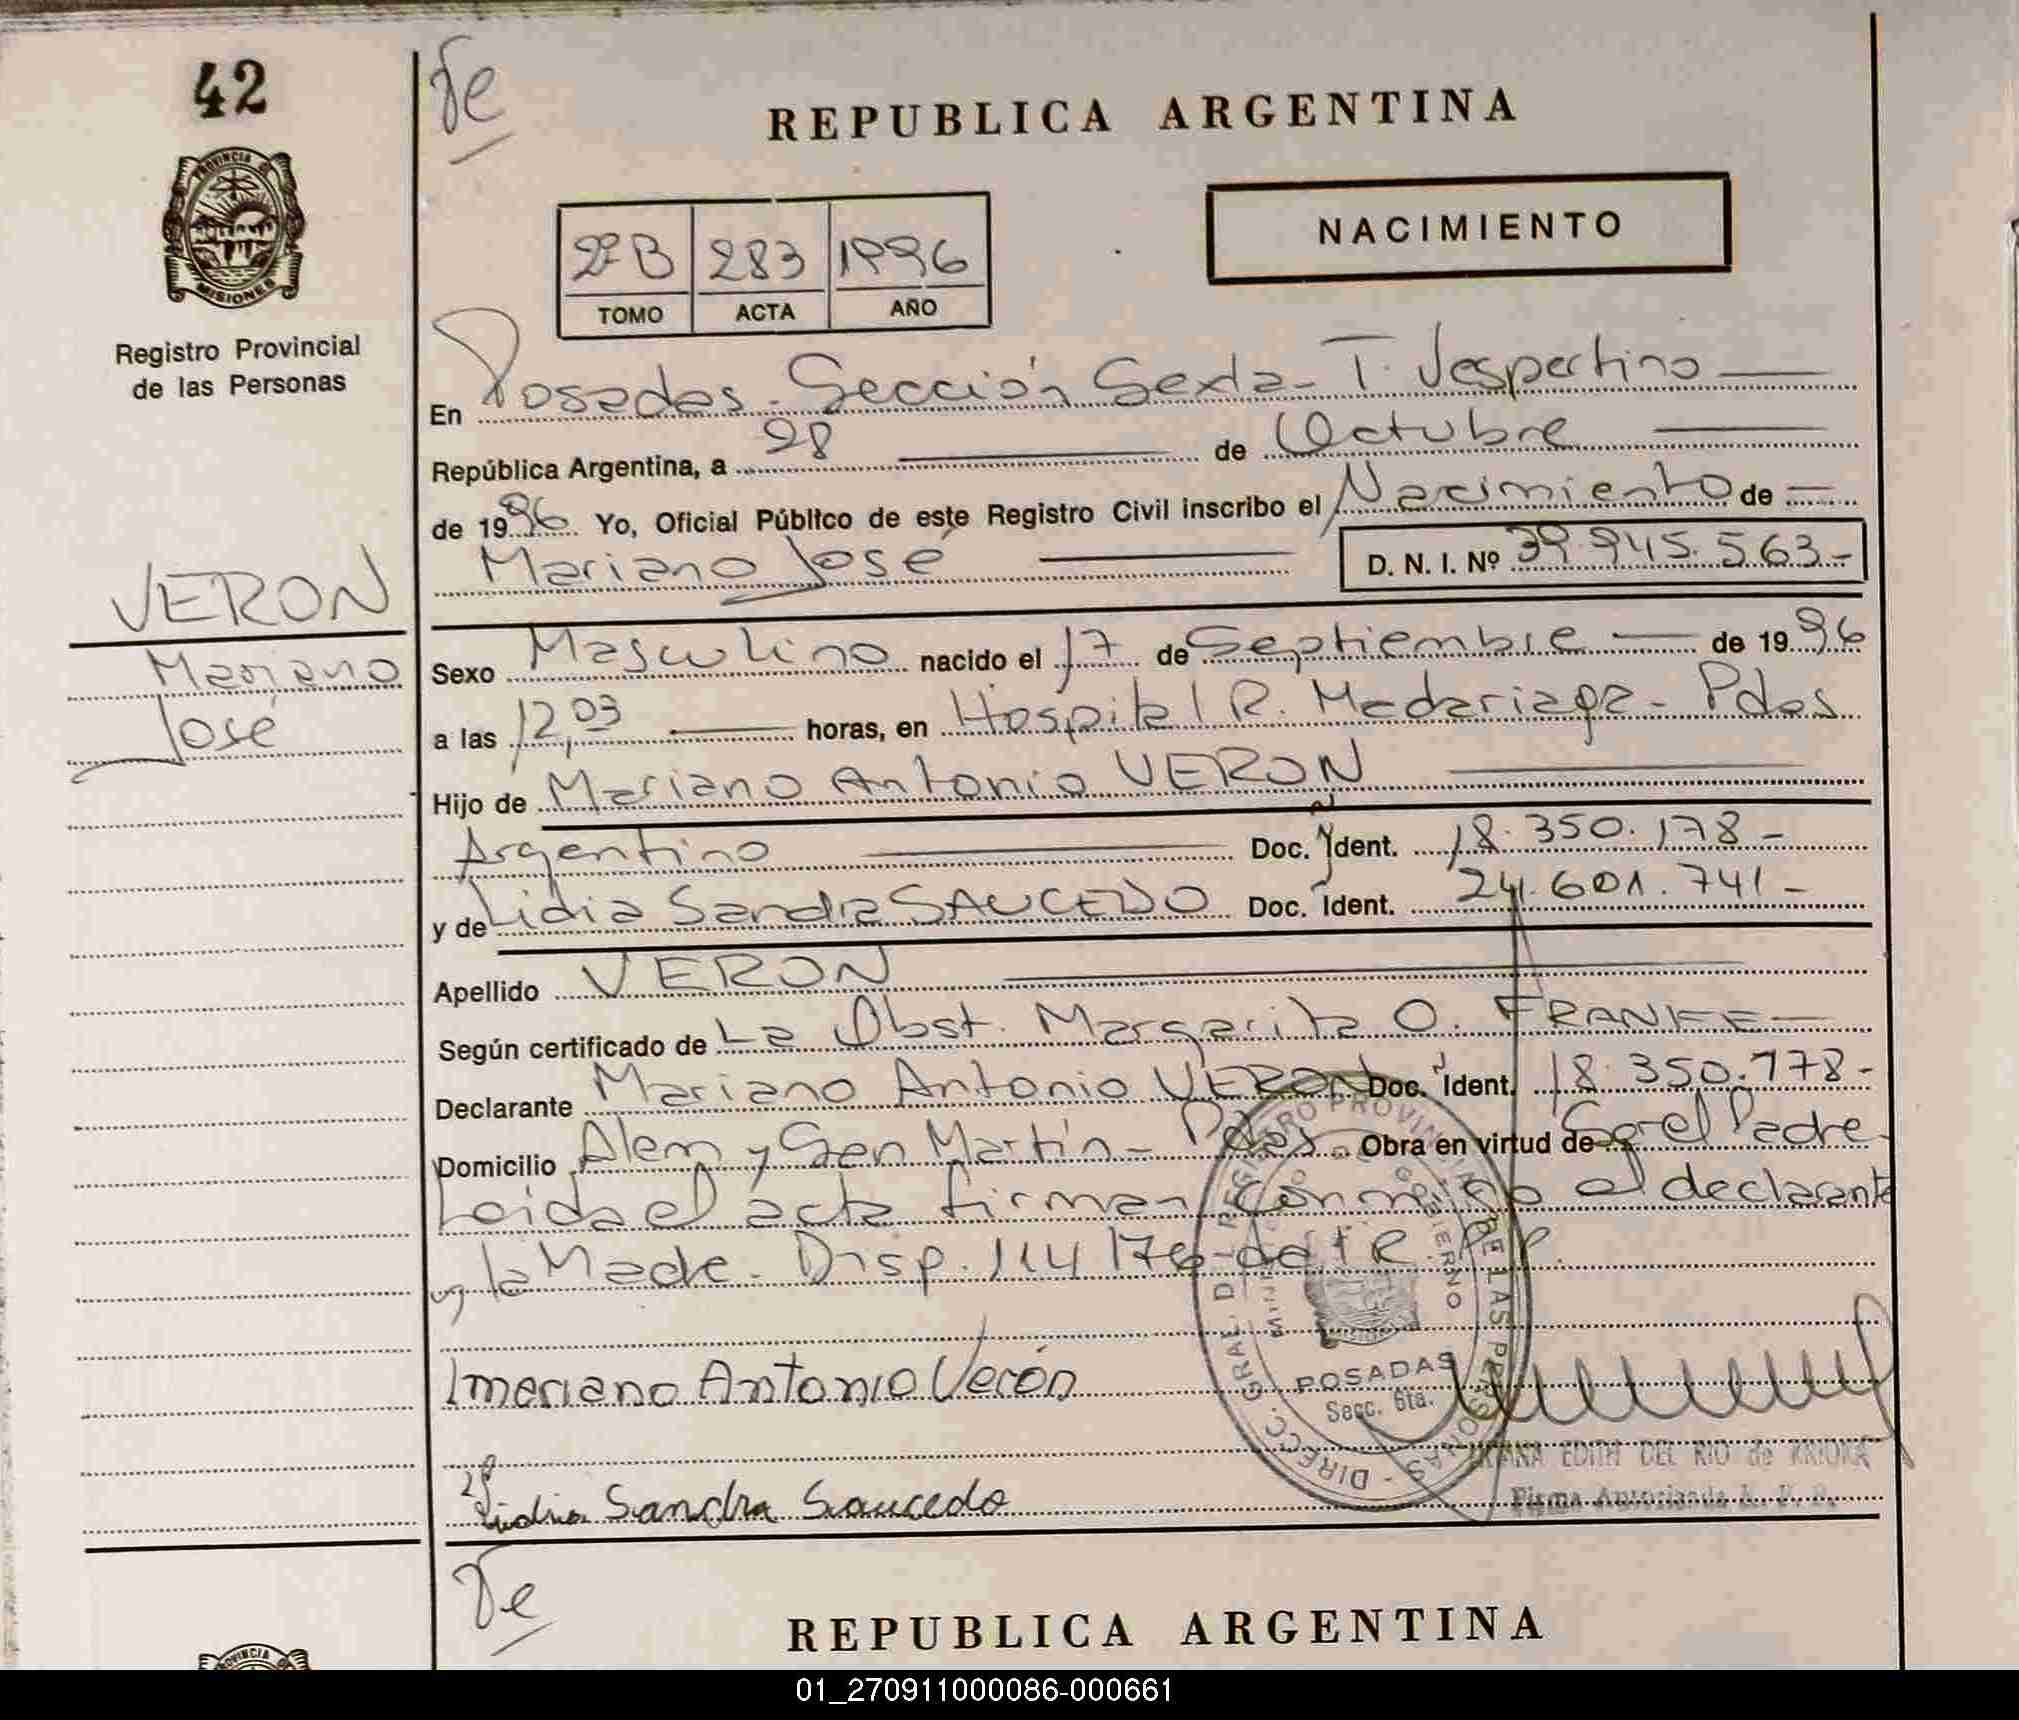 42
REPUBLICA ARGENTINA
PROVINCIA DE
MISIONES
Registro Provincial
de las Personas
NACIMIENTO
2º B 283 1996
TOMO ACTA AÑO
En Posadas - Sección Sexta - T. Vespertino
República Argentina, a 28 de Octubre
de 1996 Yo, Oficial Público de este Registro Civil inscribo el Nacimiento de
Mariano José D. N. I. Nº 39.945.563.-
VERON
Mariano
José
Sexo Masculino nacido el 17 de Septiembre de 1996
a las 12,03 horas, en Hospital R. Madariaga - Pdas
Hijo de Mariano Antonio VERON
Argentino Doc. Ident. 18.350.178-
y de Lidia Sandra SAUCEDO Doc. Ident. 24.601.741-
Apellido VERON
Según certificado de La Obst. Margarita O. FRANKE
Declarante Mariano Antonio VERON Doc. Ident. 18.350.178-
Domicilio Alem y San Martín - Pdas. Obra en virtud de Ser el Padre
Leida el acta firman conmigo el declarante
y la Madre. Disp. 114/76 de R.P.P.
Mariano Antonio Verón
Lidia Sandra Saucedo
DIRECC. GRAL. DEL REGISTRO PROVINCIAL DE LAS PERSONAS
GOBIERNO
POSADAS
Secc. 6ta.
EDITH DEL RIO de
Firma Autorizada R. P. P.
REPUBLICA ARGENTINA
01_270911000086-000661